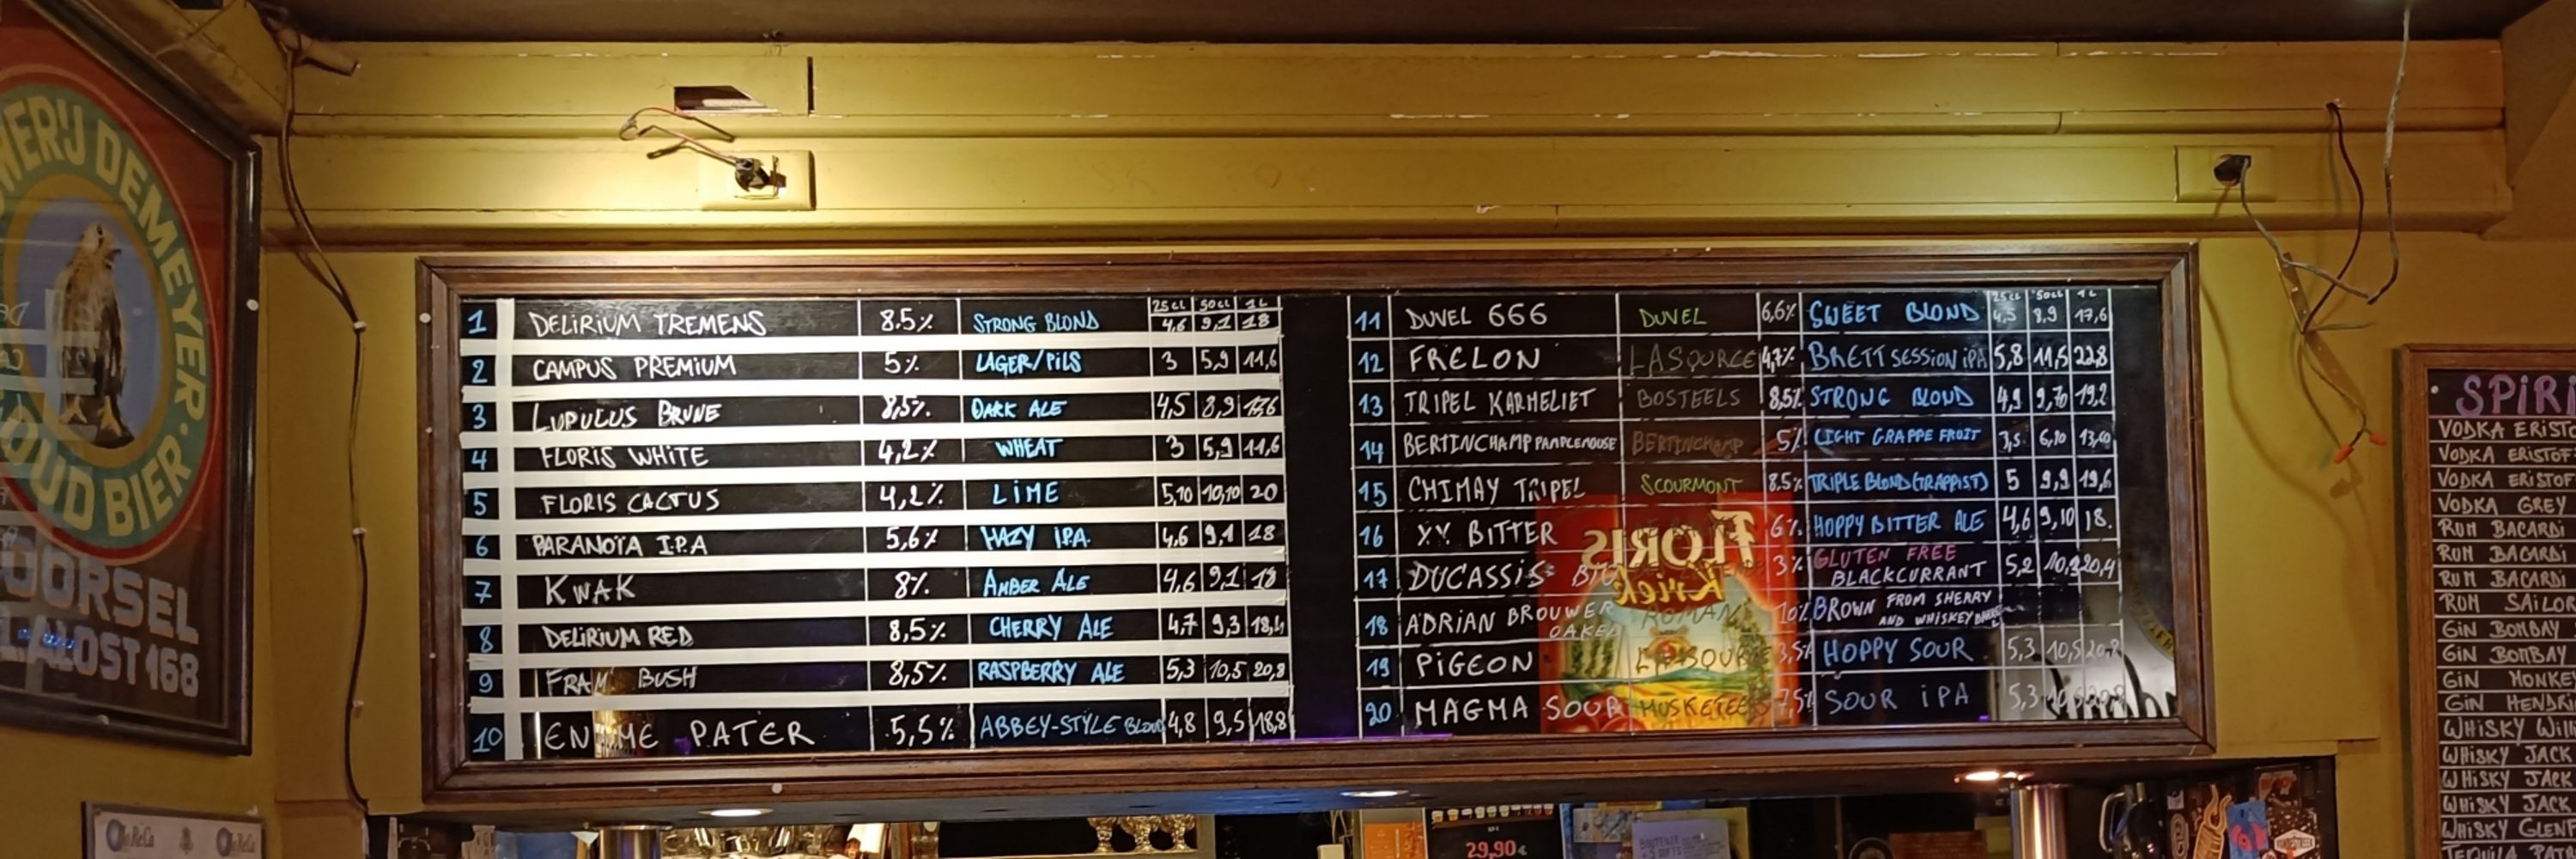 WERIJ DEMEYER
OUD BIER
OORSEL
ALOST 168
25cl 50cl 1L
1 DELIRIUM TREMENS 8.5% STRONG BLOND 4,6 9,1 18
2 CAMPUS PREMIUM 5% LAGER/PILS 3 5,9 11,6
3 LUPULUS BRUNE 8,5% DARK ALE 4,5 8,9 17,6
4 FLORIS WHITE 4,2% WHEAT 3 5,9 11,6
5 FLORIS CACTUS 4,2% LIME 5,10 10,10 20
6 PARANOÏA I.P.A 5,6% HAZY I.P.A. 4,6 9,1 18
7 KWAK 8% AMBER ALE 4,6 9,1 18
8 DELIRIUM RED 8,5% CHERRY ALE 4,7 9,3 18,4
9 FRAM BUSH 8,5% RASPBERRY ALE 5,3 10,5 20,8
10 ENAME PATER 5,5% ABBEY-STYLE BLOND 4,8 9,5 18,8
25cl 50cl 1L
11 DUVEL 666 DUVEL 6,6% SWEET BLOND 4,5 8,9 17,6
12 FRELON LA SOURCE 4,7% BRETT SESSION IPA 5,8 11,5 22,8
13 TRIPEL KARMELIET BOSTEELS 8,5% STRONG BLOND 4,9 9,70 19,2
14 BERTINCHAMP PAMPLEMOUSE BERTINCHAMP 5% LIGHT GRAPPE FROIT 3,5 6,10 13,60
15 CHIMAY TRIPEL SCOURMONT 8.5% TRIPLE BLOND (TRAPPIST) 5 9,9 19,6
16 XX BITTER 6% HOPPY BITTER ALE 4,6 9,10 18.
17 DUCASSIS 3% GLUTEN FREE
BLACKCURRANT 5,2 10,3 20,4
18 ADRIAN BROUWER ROMAN 10% BROWN FROM SHERRY
OAKED AND WHISKEY BARREL
19 PIGEON LA SOURCE 3,5% HOPPY SOUR 5,3 10,5 20,8
20 MAGMA SOUR MUSKETEERS 7,5% SOUR IPA 5,3
FLORIS
Kriek
29,90€
SPIRI
VODKA ERISTO
VODKA ERISTOF
VODKA ERISTOF
VODKA GREY
RUM BACARDI
RUM BACARDI
RUM BACARDI
RUM SAILOR
GIN BOMBAY
GIN BOMBAY
GIN MONKEY
GIN HENDRI
WHISKY WILL
WHISKY JACK
WHISKY JACK
WHISKY JACK
WHISKY GLENF
TEQUILA PATR